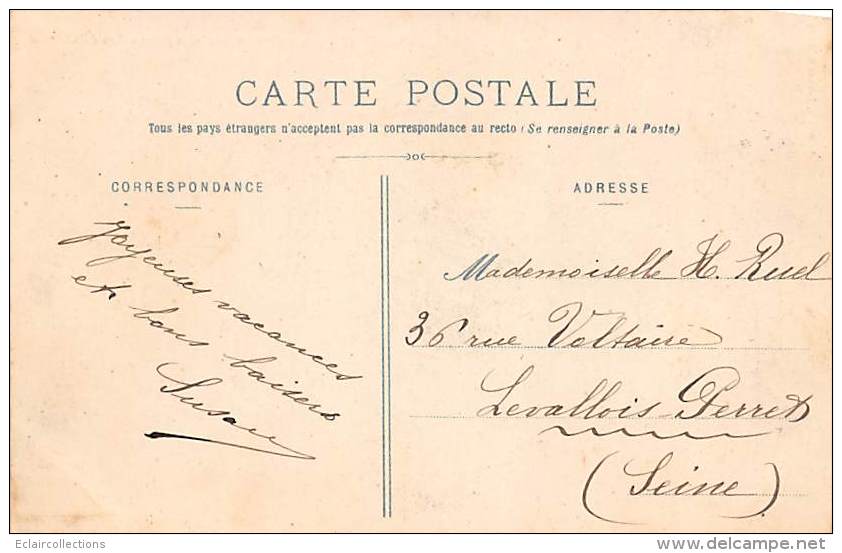 CARTE POSTALE
Tous les pays étrangers n'acceptent pas la correspondance au recto (Se renseigner à la Poste)
CORRESPONDANCE
Joyeuses vacances
et bons baisers
Susan
ADRESSE
Mademoiselle H. Ruel
36 rue Voltaire
Levallois Perret
(Seine)
Eclaircollections
www.delcampe.net